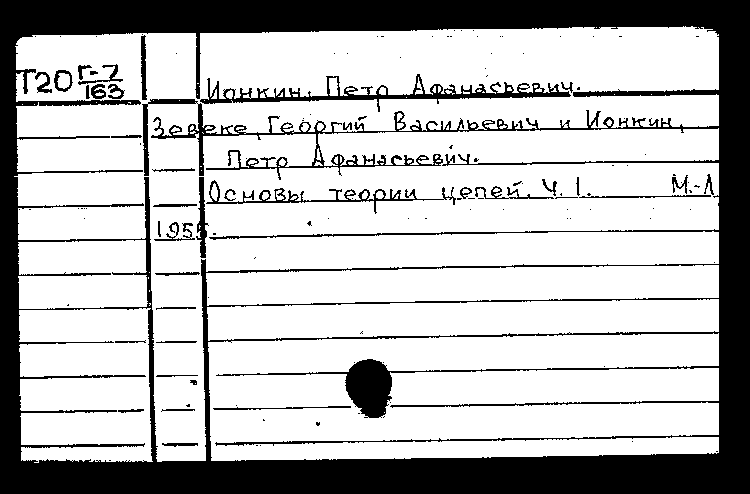 Т20 Г-7/163
Ионкин, Петр Афанасьевич.
Зевеке, Георгий Васильевич и Ионкин,
Петр Афанасьевич.
Основы теории цепей. Ч. 1. М.-Л
1955.